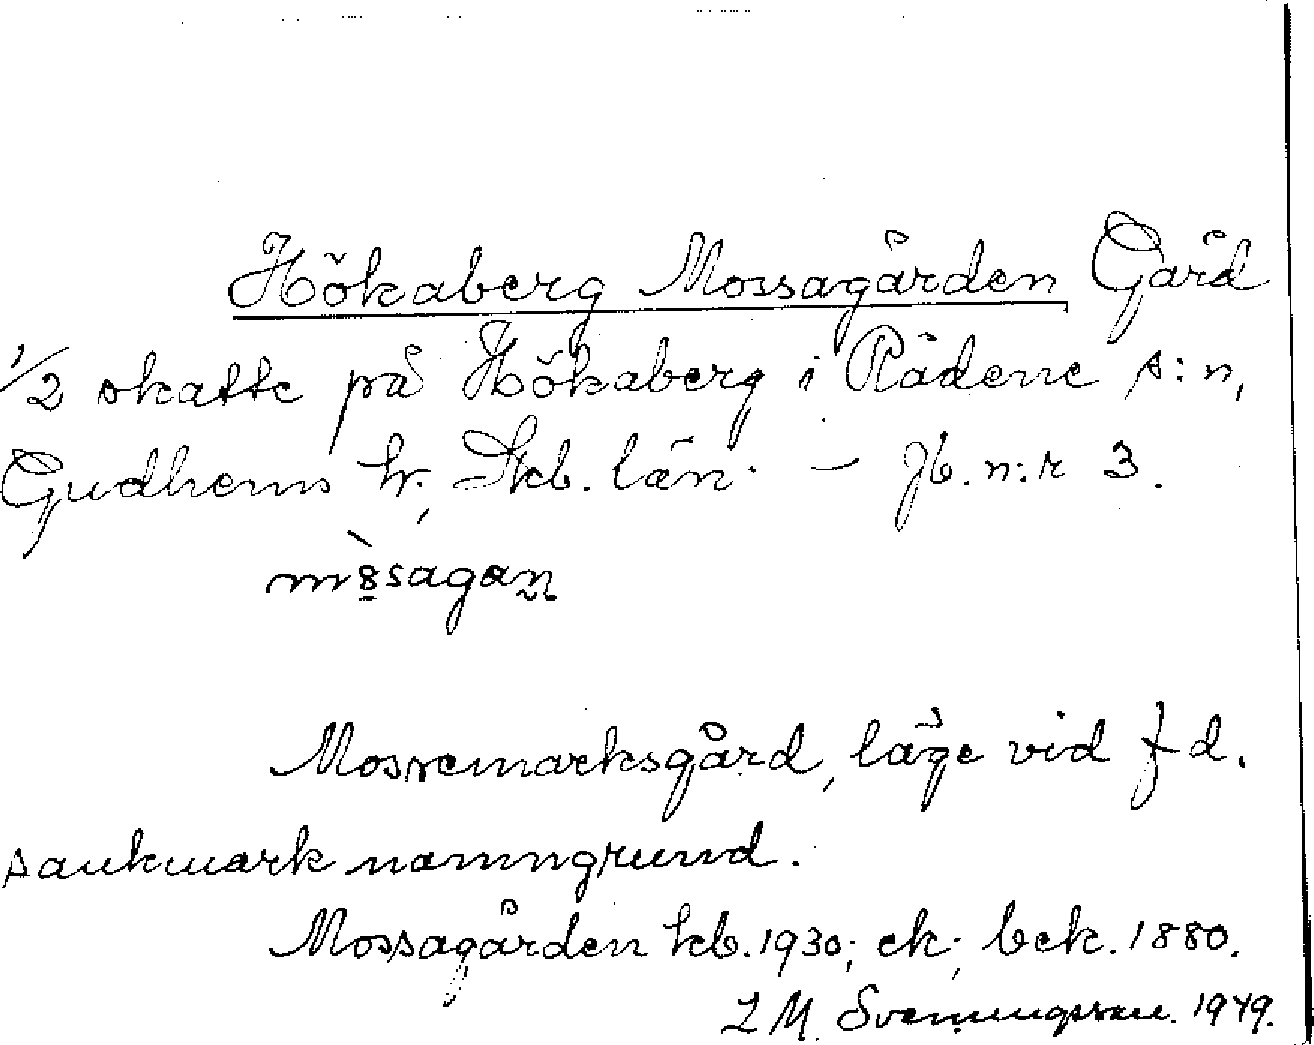 Hökaberg Mossagården Gård
1/2 skatte på Hökaberg i Rådene s:n,
Gudhems hr, Skb. län. – Jb. n:r 3.
Mossemarksgård, läge vid f d.
sankmark namngrund.
Mossagården kb. 1930; ek; bek. 1880.
L M. Svenungsson. 1949.